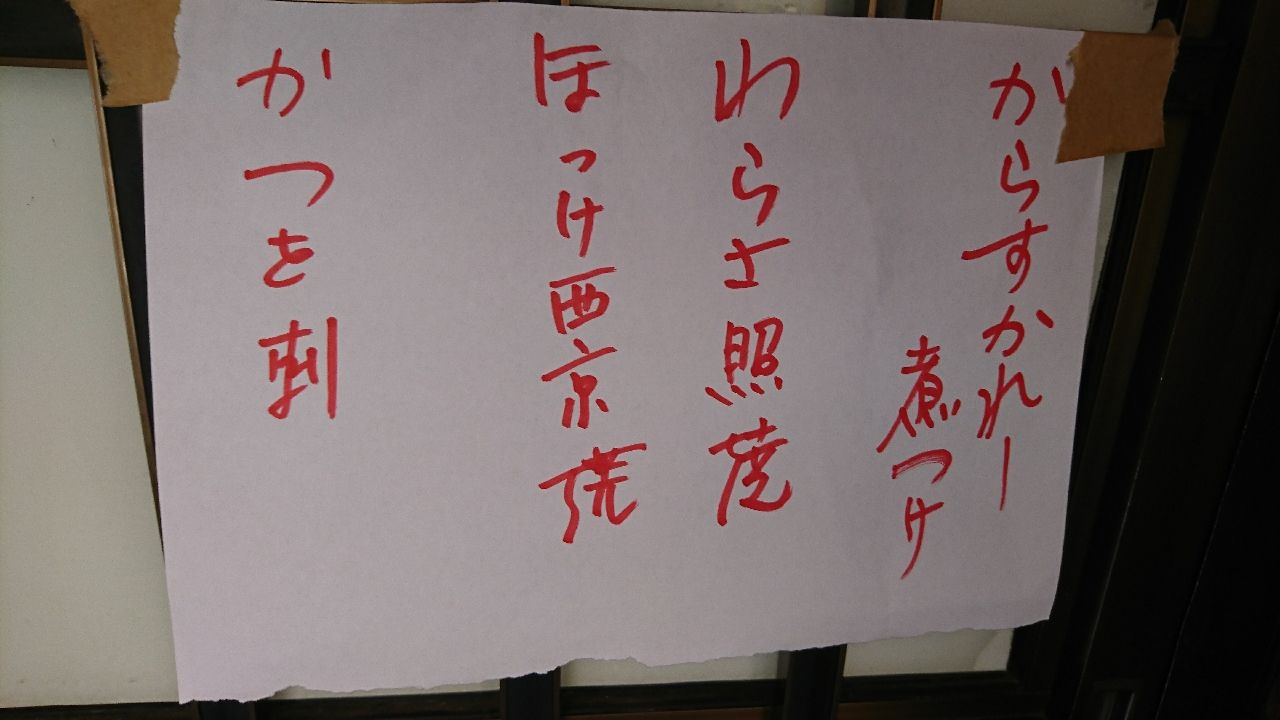 からすかれー
煮つけ
わらさ照焼
ほっけ西京焼
かつを刺